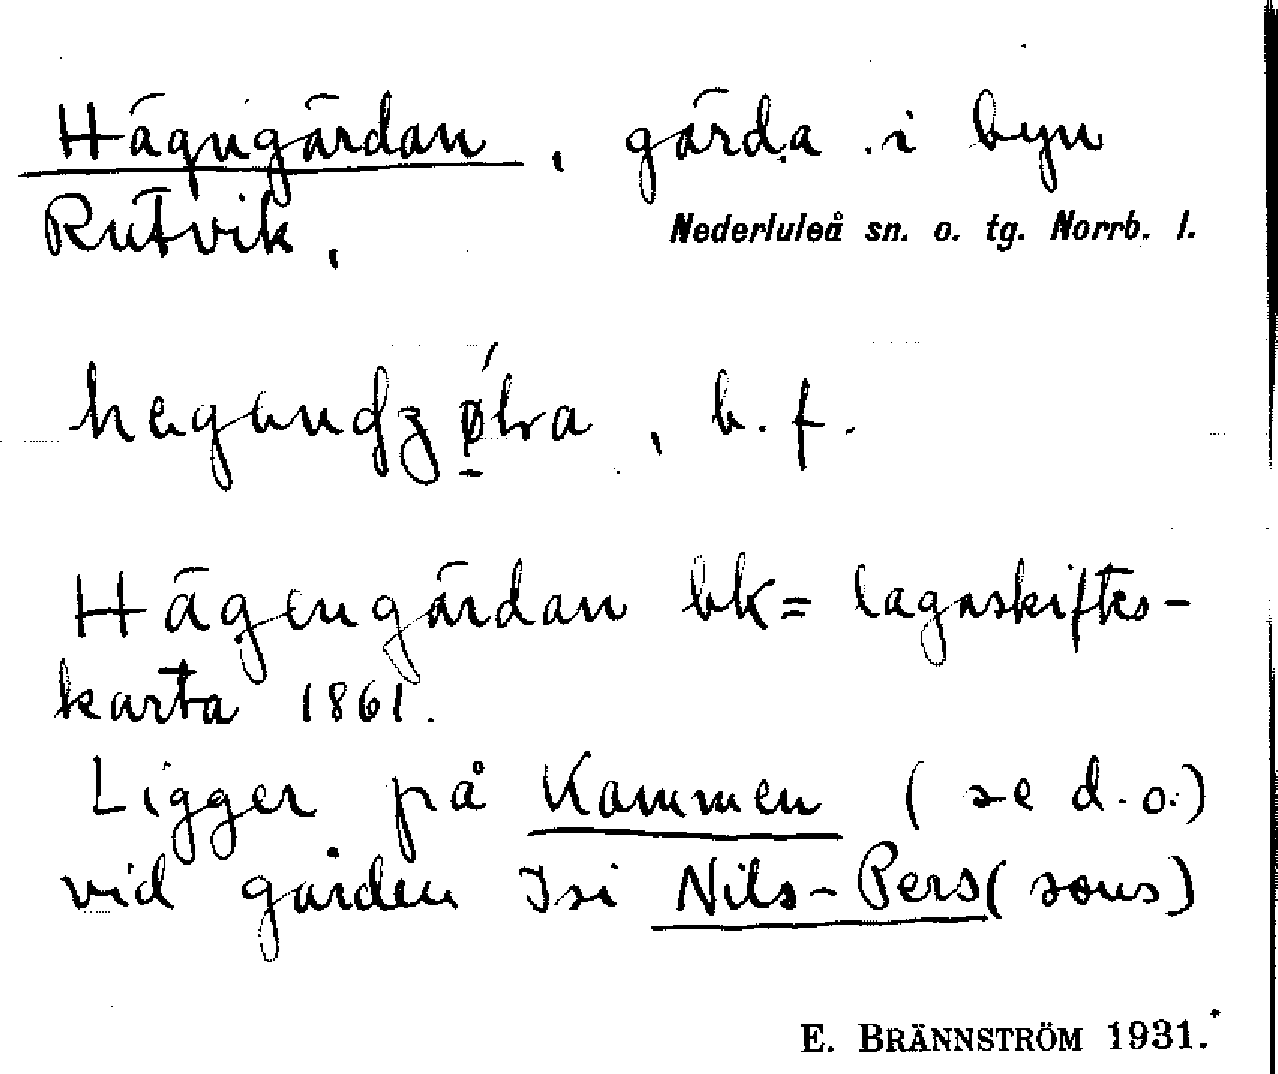 Hägngärdan, gärda i byn
Rutvik, Nederluleå sn. o. tg. Norrb. l.
b. f.
Hägengärdan bk = lagaskifts-
karta 1861.
Ligger på Kammen (se d.o.)
vid gården Isi Nils-Pers(sons)
E. BRÄNNSTRÖM 1931.